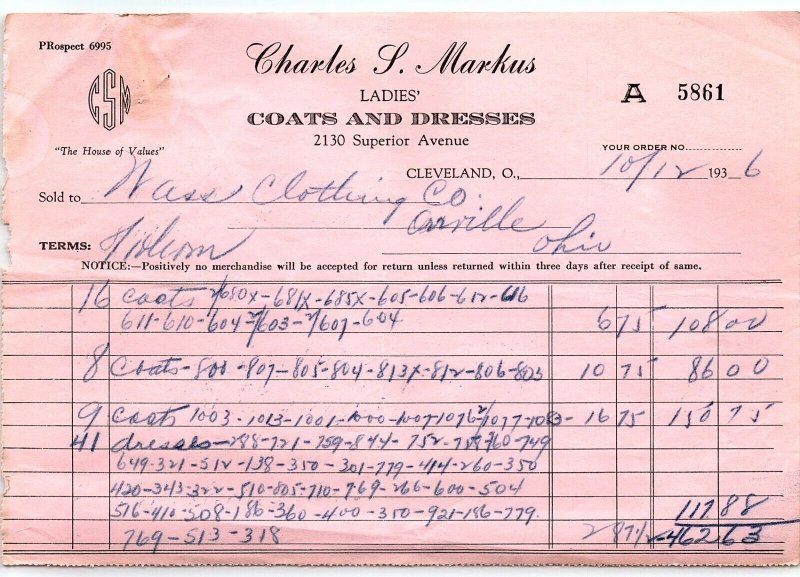 PRospect 6995
Charles S. Markus
A 5861
LADIES'
CSM
COATS AND DRESSES
2130 Superior Avenue
"The House of Values"
YOUR ORDER NO.
CLEVELAND, O., 10/12 1936
Sold to Wass Clothing Co.
Orrville
TERMS: Ohio
NOTICE:—Positively no merchandise will be accepted for return unless returned within three days after receipt of same.
16 Coats 2/680X-681X-685X-605-606-612-616
611-610-604-2/603-2/607-604 6 75 108 00
8 Coats-800-807-805-804-813X-812-806-803 10 75 86 00
9 Coats 1003-1013-1001-1000-1007-1076-2/1077-1083- 16 75 150 75
41 dresses-288-721-759-844-752-758-760-749
649-321-512-138-350-301-779-414-260-350
420-343-322-510-805-710-769-266-600-504
516-410-508-186-360-400-350-921-186-779. 117 88
769-513-318 2 87 1/2 -462 63